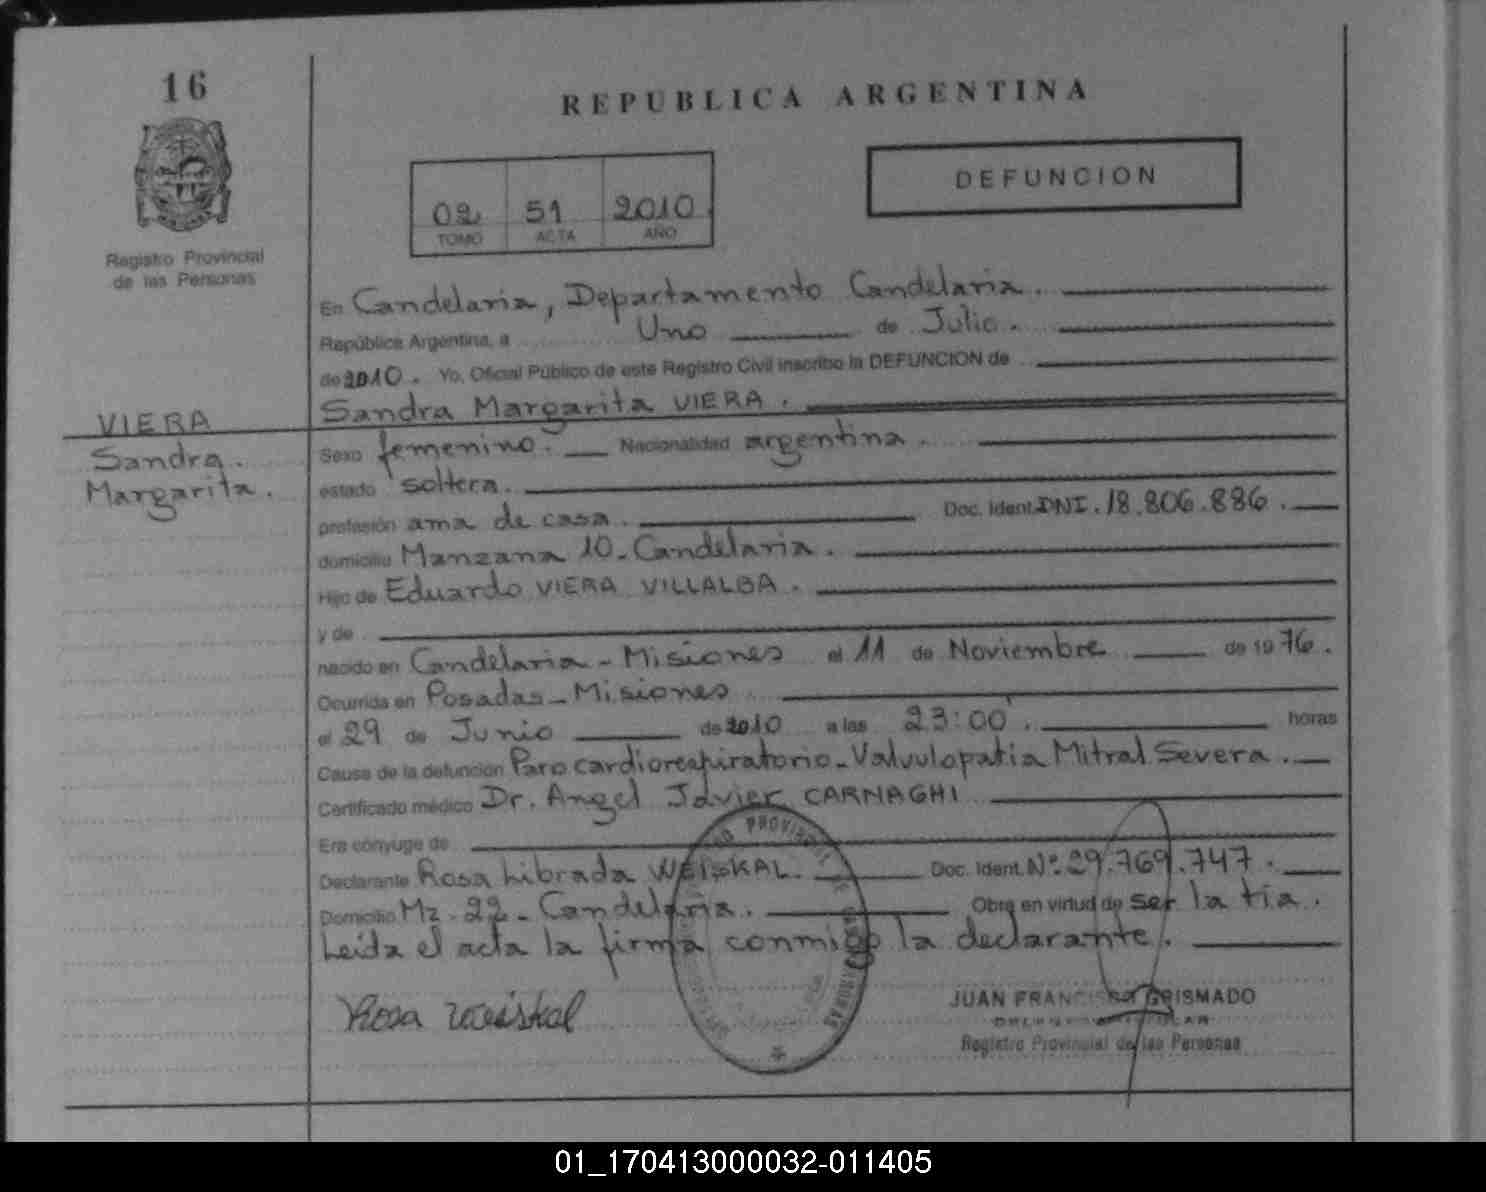 16
REPUBLICA ARGENTINA
DEFUNCION
02 51 2010
TOMO ACTA AÑO
Registro Provincial
de las Personas
En Candelaria, Departamento Candelaria.
República Argentina, a Uno de Julio.
de 2010. Yo, Oficial Público de este Registro Civil inscribo la DEFUNCION de
VIERA
Sandra Margarita VIERA.
Sandra
Margarita.
Sexo femenino. Nacionalidad argentina.
estado soltera.
profesión ama de casa. Doc. Ident. DNI. 18.806.886.
domicilio Manzana 10 - Candelaria.
Hijo de Eduardo VIERA VILLALBA.
y de
nacido en Candelaria - Misiones el 11 de Noviembre de 1976.
Ocurrida en Posadas - Misiones
el 29 de Junio de 2010 a las 23:00'. horas
Causa de la defunción Paro cardiorespiratorio - Valvulopatia Mitral Severa.
Certificado médico Dr. Angel Javier CARNAGHI
Era cónyuge de
Declarante Rosa Librada WEISKAL. Doc. Ident. Nº. 29.769.747.
Domicilio Mz. 22 - Candelaria. Obra en virtud de ser la tía.
Leída el acta la firma conmigo la declarante.
Rosa Weiskal
JUAN FRANCISCO GRISMADO
Registro Provincial de las Personas
01_170413000032-011405